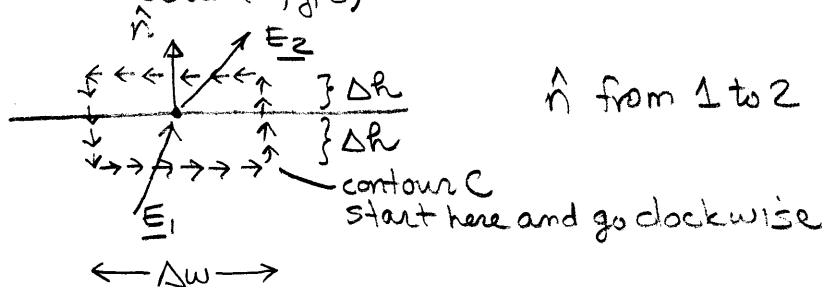 n̂
E2
} Δh
} Δh
n̂ from 1 to 2
contour C
start here and go clockwise
E1
Δw